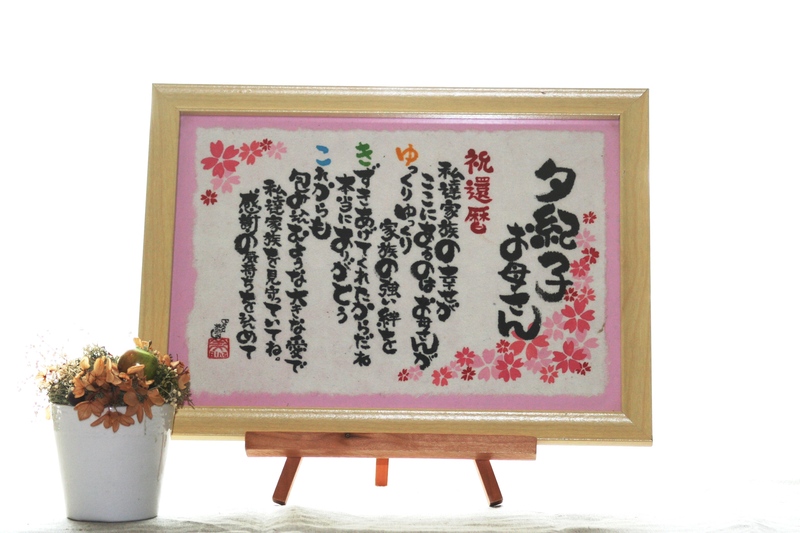 夕紀子
お母さん
祝還暦
私達家族の幸せが
ここにあるのはお母さんが
ゆっくりゆっくり
家族の強い絆を
きずきあげてくれたからだね
本当にありがとう
これからも
包み込むような大きな愛で
私達家族を見守っていてね。
感謝の気持ちを込めて